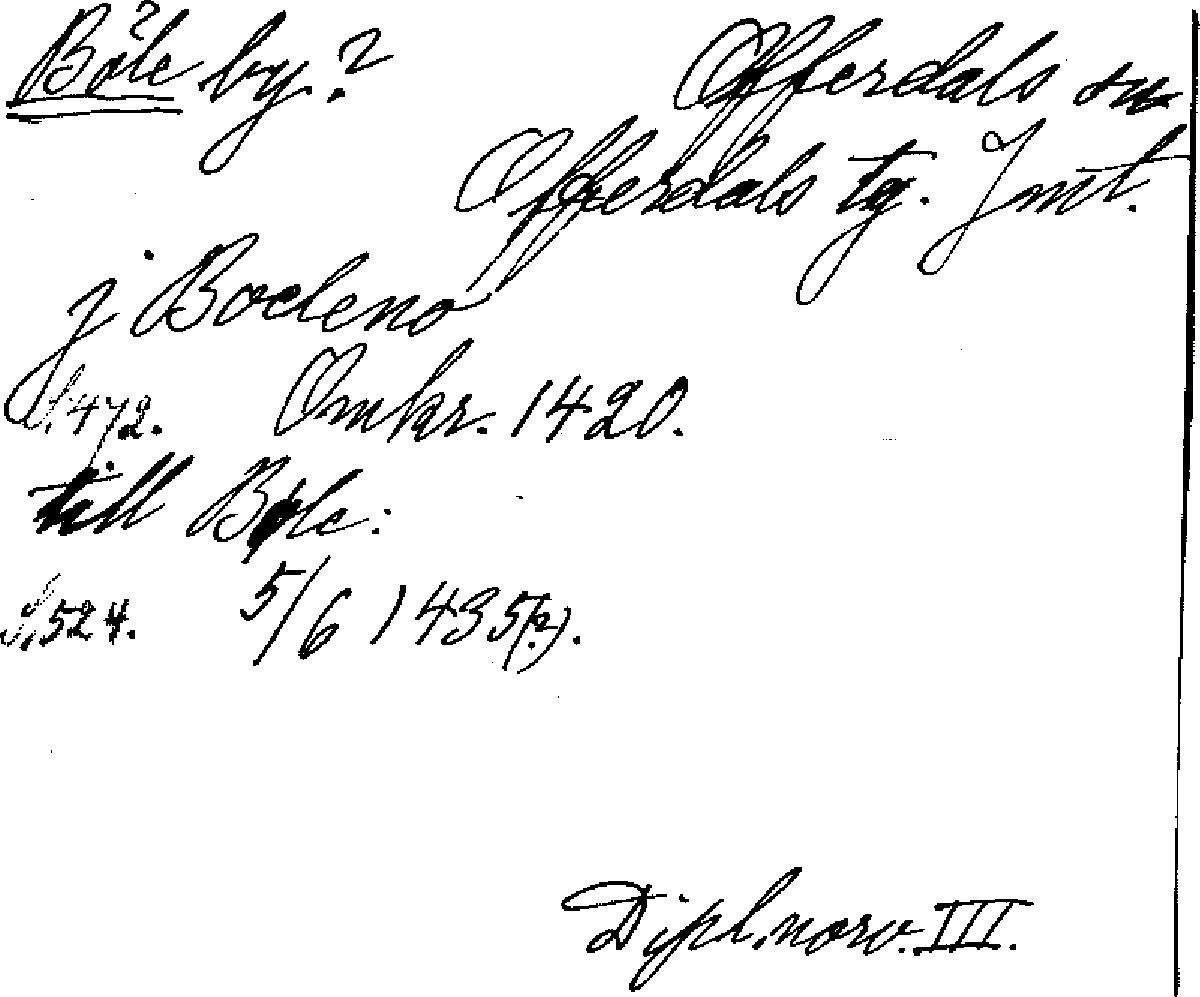 Böle by? Offerdals sn
Offerdals tg. Jmt.
j Boeleno
S. 472. Omkr. 1420.
till Bøle:
S. 524. 5/6 1435(?).
Dipl. norv. III.